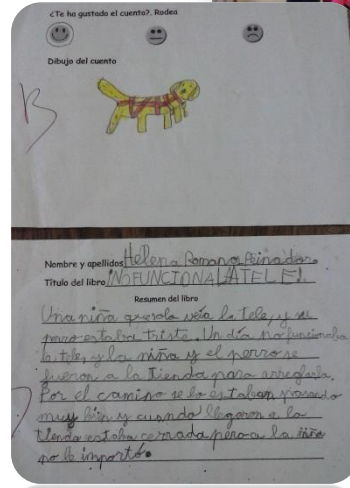 ¿Te ha gustado el cuento?. Rodea
Dibujo del cuento
B
Nombre y apellidos Helena Romano Peinador
Título del libro ¡NO FUNCIONA LA TELE!
Resumen del libro
Una niña solo veía la tele, y su
perro estaba triste. Un día no funcionaba
la tele, y la niña y el perro se
fueron a la tienda para arreglarla.
Por el camino se lo estaban pasando
muy bien y cuando llegaron a la
tienda estaba cerrada pero a la niña
no le importó.